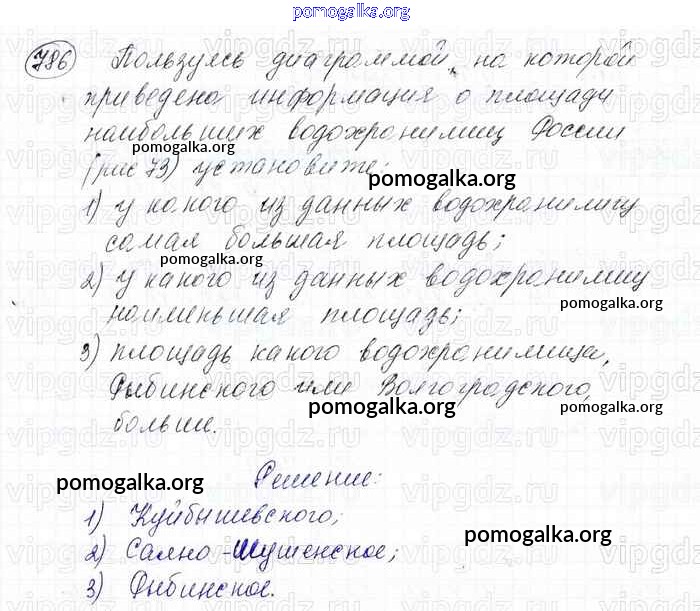 pomogalka.org
786 Пользуясь диаграммой, на которой
приведена информация о площади
наибольших водохранилищ России
(рис 73) установите:
pomogalka.org
1) у какого из данных водохранилищ
самая большая площадь;
pomogalka.org
2) у какого из данных водохранилищ
наименьшая площадь;
pomogalka.org
3) площадь какого водохранилища,
Рыбинского или Волгоградского,
pomogalka.org pomogalka.org
больше.
Решение:
pomogalka.org
1) Куйбышевского;
pomogalka.org
2) Саяно-Шушенское;
3) Рыбинское.
pomogalka.org